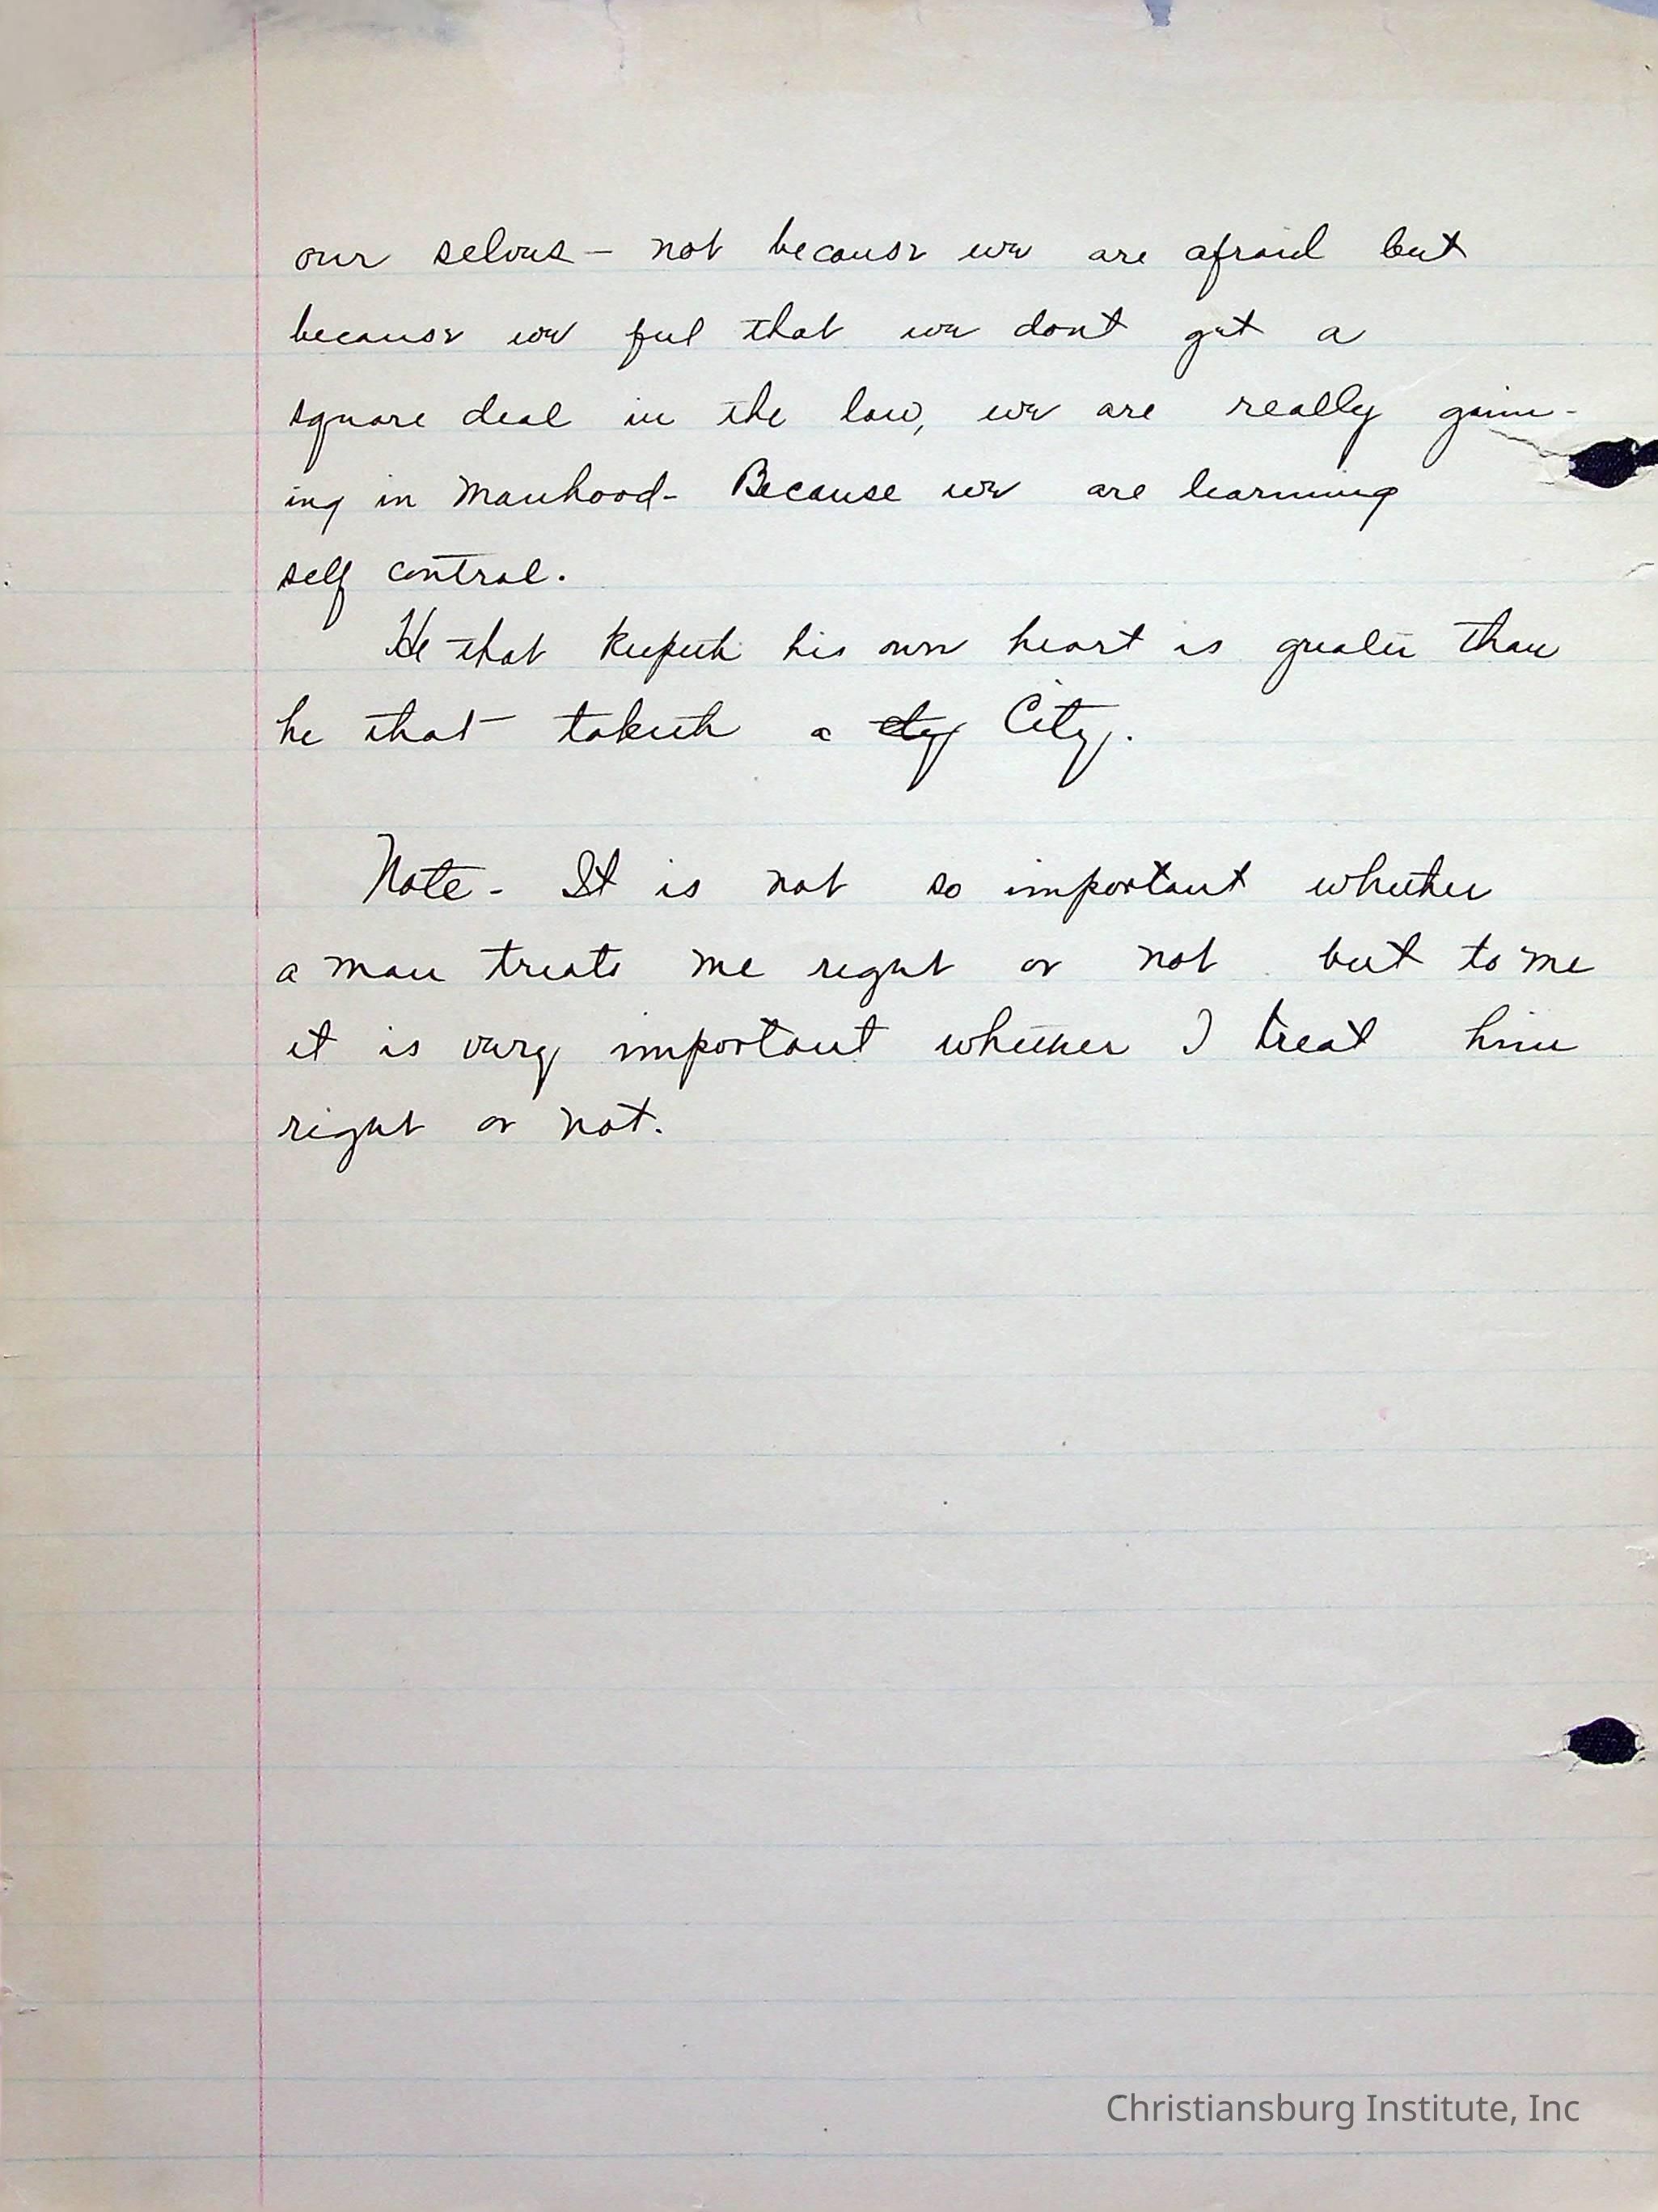 our selves – not because we are afraid but
because we feel that we dont get a
square deal in the law, we are really gain-
ing in manhood - Because we are learning
self control.
He that keepeth his own heart is greater than
he that taketh a cty City.
Note - It is not so important whether
a man treats me right or not but to me
it is very important whether I treat him
right or not.
Christiansburg Institute, Inc